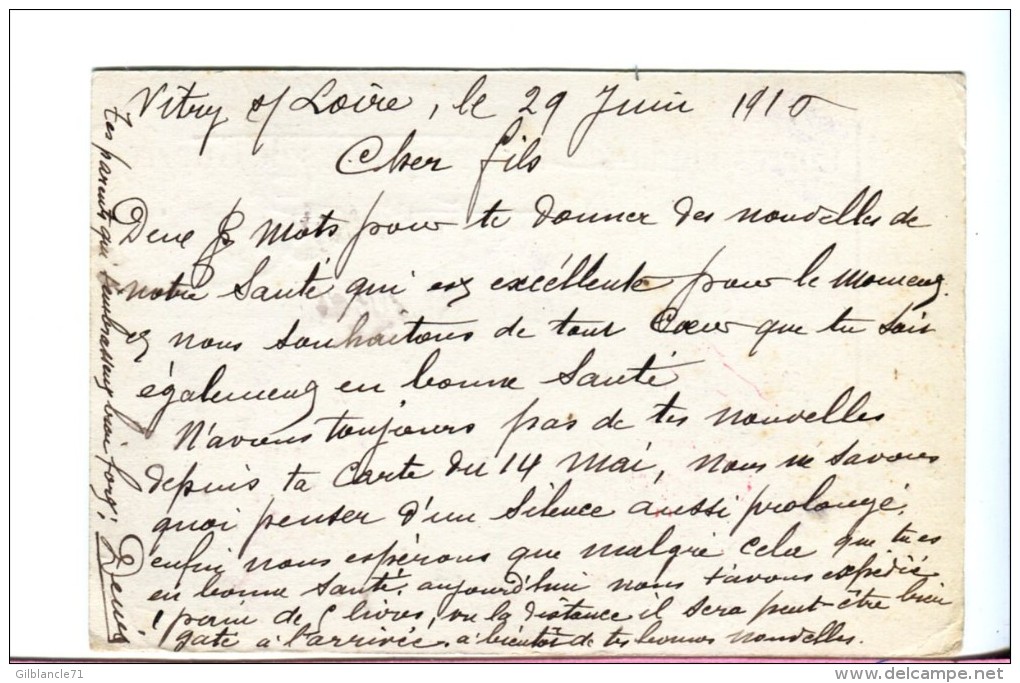 Vitry s/ Loire, le 29 Juin 1915
Cher fils
Deux mots pour te donner des nouvelles de
notre Santé qui est excéllente pour le moment
et nous souhaitons de tout Coeur que tu sois
également en bonne Santé
N'avons toujours pas de tes nouvelles
depuis ta Carte du 14 Mai, nous ne savons
quoi penser d'un silence aussi prolongé,
enfin nous espérons que malgré cela que tu es
en bonne santé, aujourd'hui nous t'avons expédié
1 pain de livres, vu la distance il sera peut-être bien
gaté à l'arrivée. à bientôt de tes bonnes nouvelles.
Tes parents qui t'embrassent bien fort,
Denis
Gilblancle71
delcampe.net